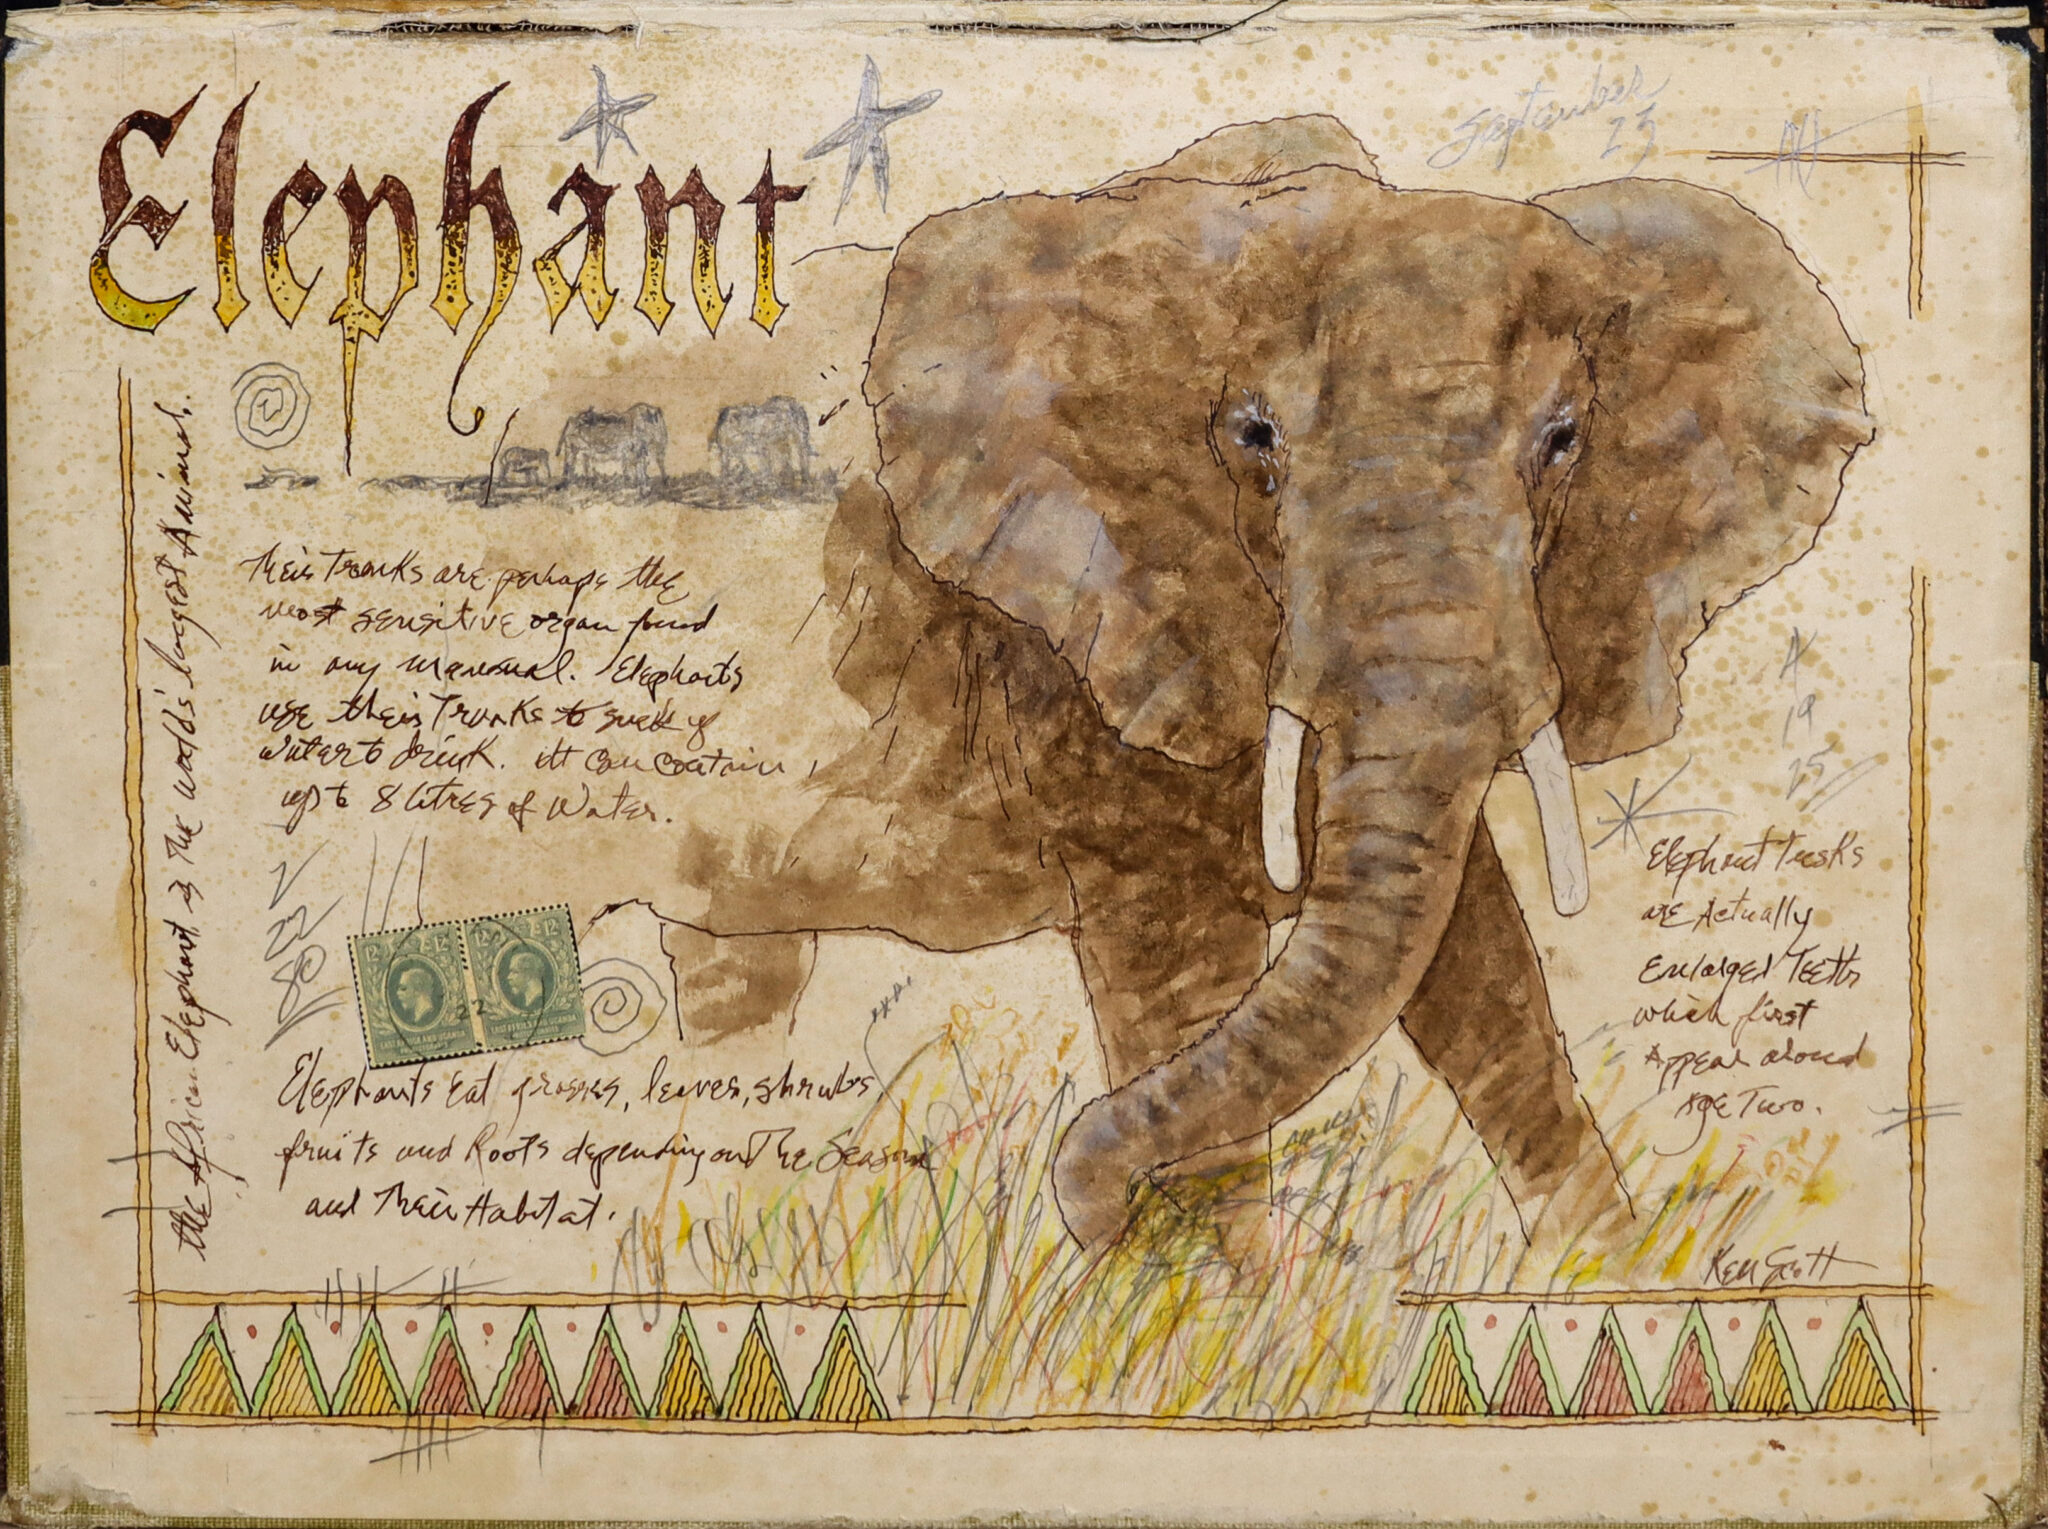 Elephant
September
25
The African Elephant is the world's largest Animal.
Their Trunks are perhaps the
most sensitive organ found
in any mammal. Elephants
use their Trunks to suck up
water to drink. It can contain
up to 8 litres of water.
4
19
25
Elephant Tusks
are Actually
Enlarged Teeth
which first
Appear around
Age Two.
22
80
12 12 12 12
22
EAST AFRICA AND UGANDA EAST AFRICA AND UGANDA
Elephants Eat grasses, leaves, shrubs,
fruits and Roots depending on The Season
and Their Habitat.
Ken Scott